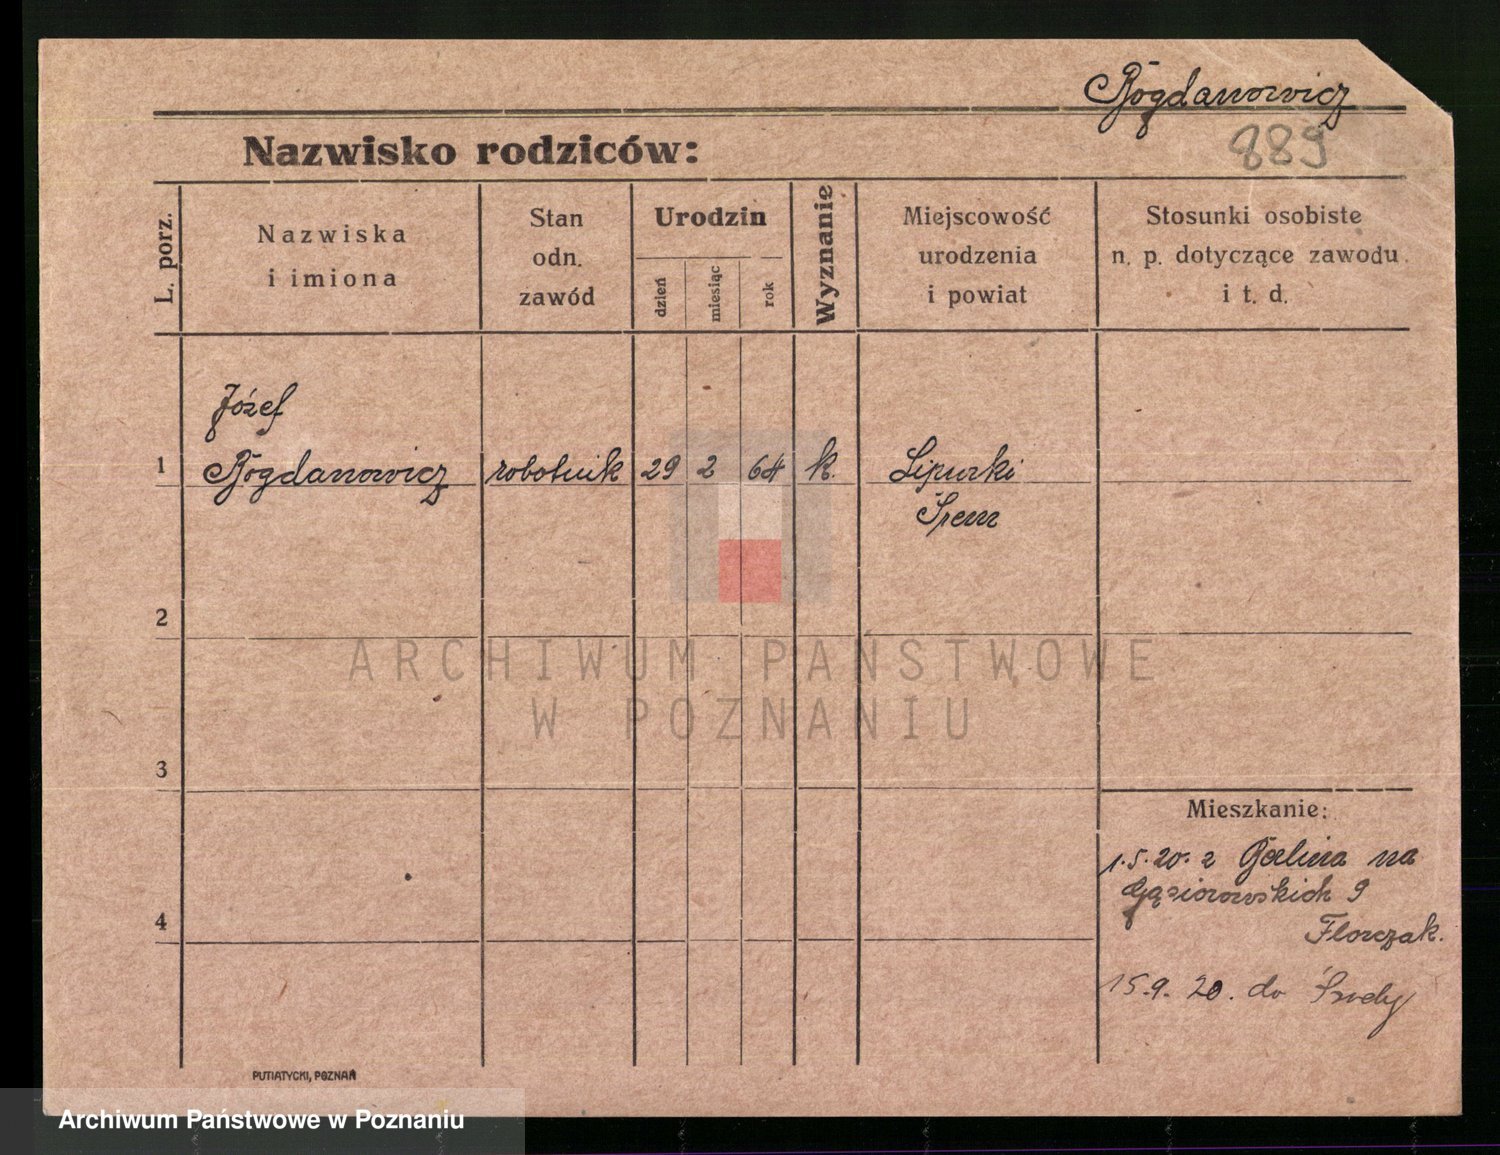 Bogdanowicz
889
Nazwisko rodziców:
L. porz.
Nazwiska
i imiona
Stan
odn.
zawód
Urodzin
dzień
miesiąc
rok
Wyznanie
Miejscowość
urodzenia
i powiat
Stosunki osobiste
n. p. dotyczące zawodu
i t. d.
Józef
1 Bogdanowicz robotnik 29 2 64 k.
Śrem
2
ARCHIWUM PAŃSTWOWE
W POZNANIU
3
Mieszkanie:
1.5.20. z Berlina na
Gąsiorowskich 9
4
Florczak.
15.9.20. do Środy
PUTIATYCKI, POZNAŃ
Archiwum Państwowe w Poznaniu